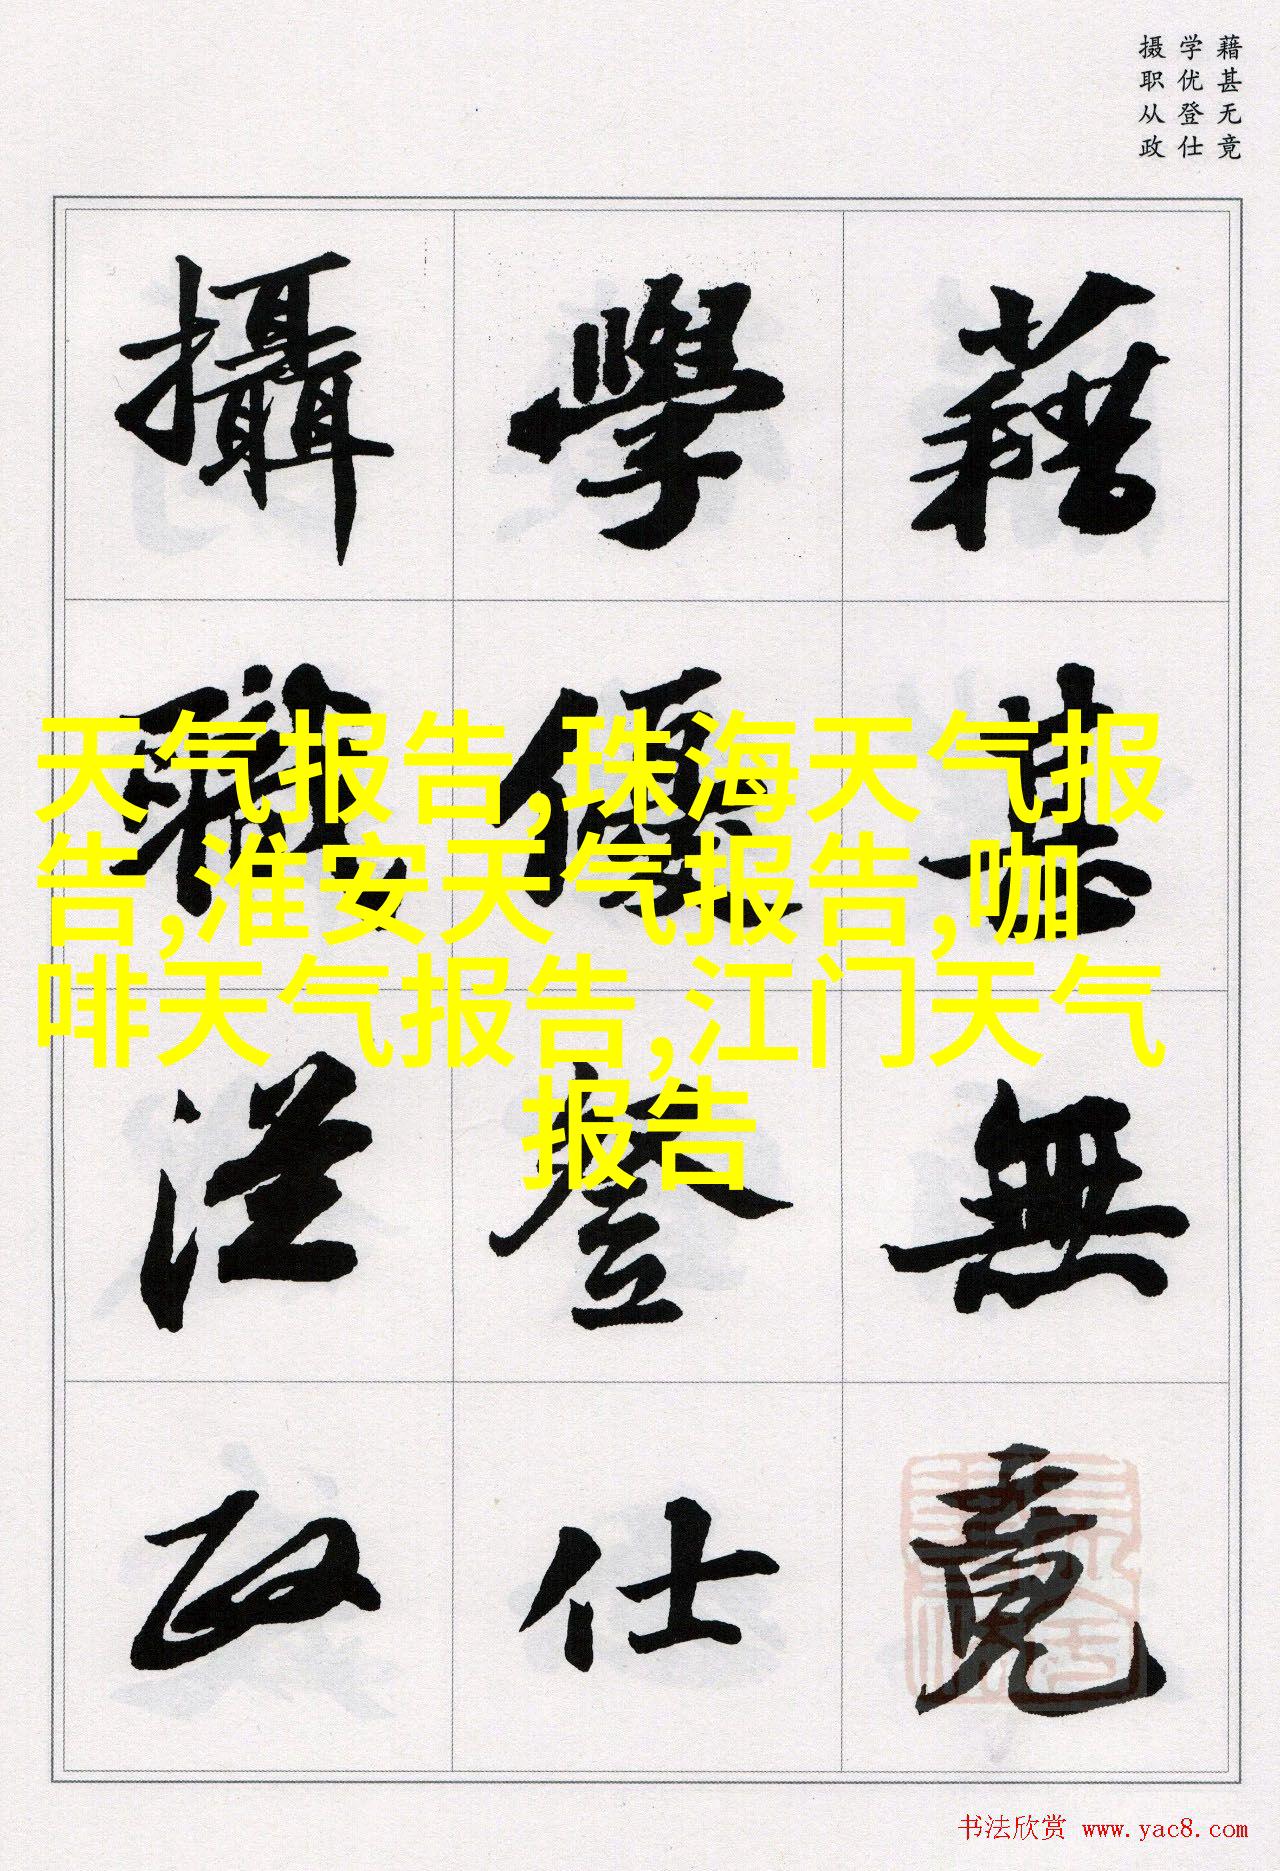 藉甚无竟
学优登仕
摄职从政
藉甚無竟
學優登仕
攝職從政
天气报告,珠海天气报
告,淮安天气报告,咖
啡天气报告,江门天气
报告
书法欣赏 www.yac8.com